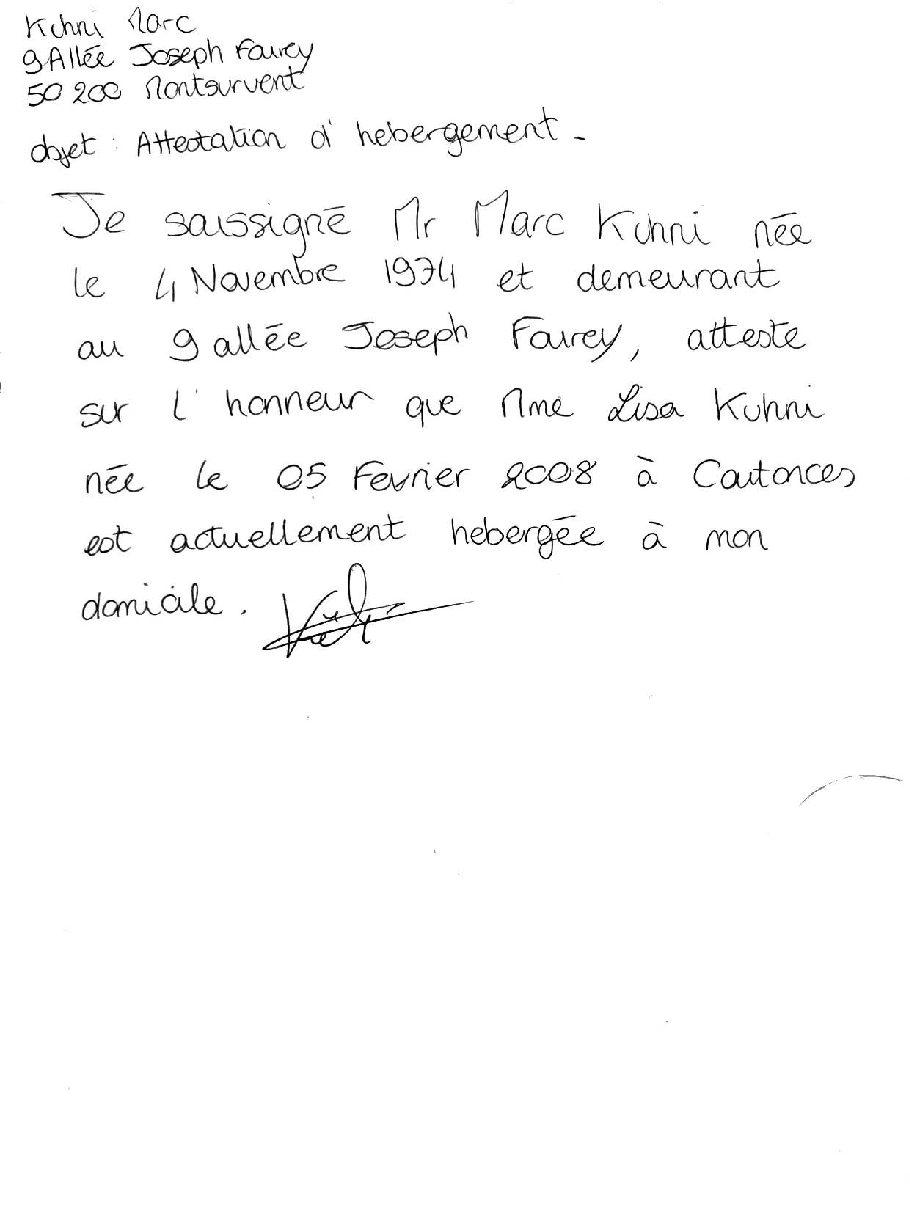 Kuhni Marc
9 Allée Joseph Fairey
50 200 Montsurvent
objet : Attestation d'hebergement -
Je soussigné Mr Marc Kuhni née
le 4 Novembre 1974 et demeurant
au 9 allée Joseph Fairey, atteste
sur l'honneur que Mme Lisa Kuhni
née le 05 Fevrier 2008 à Coutances
est actuellement hebergée à mon
domicile.